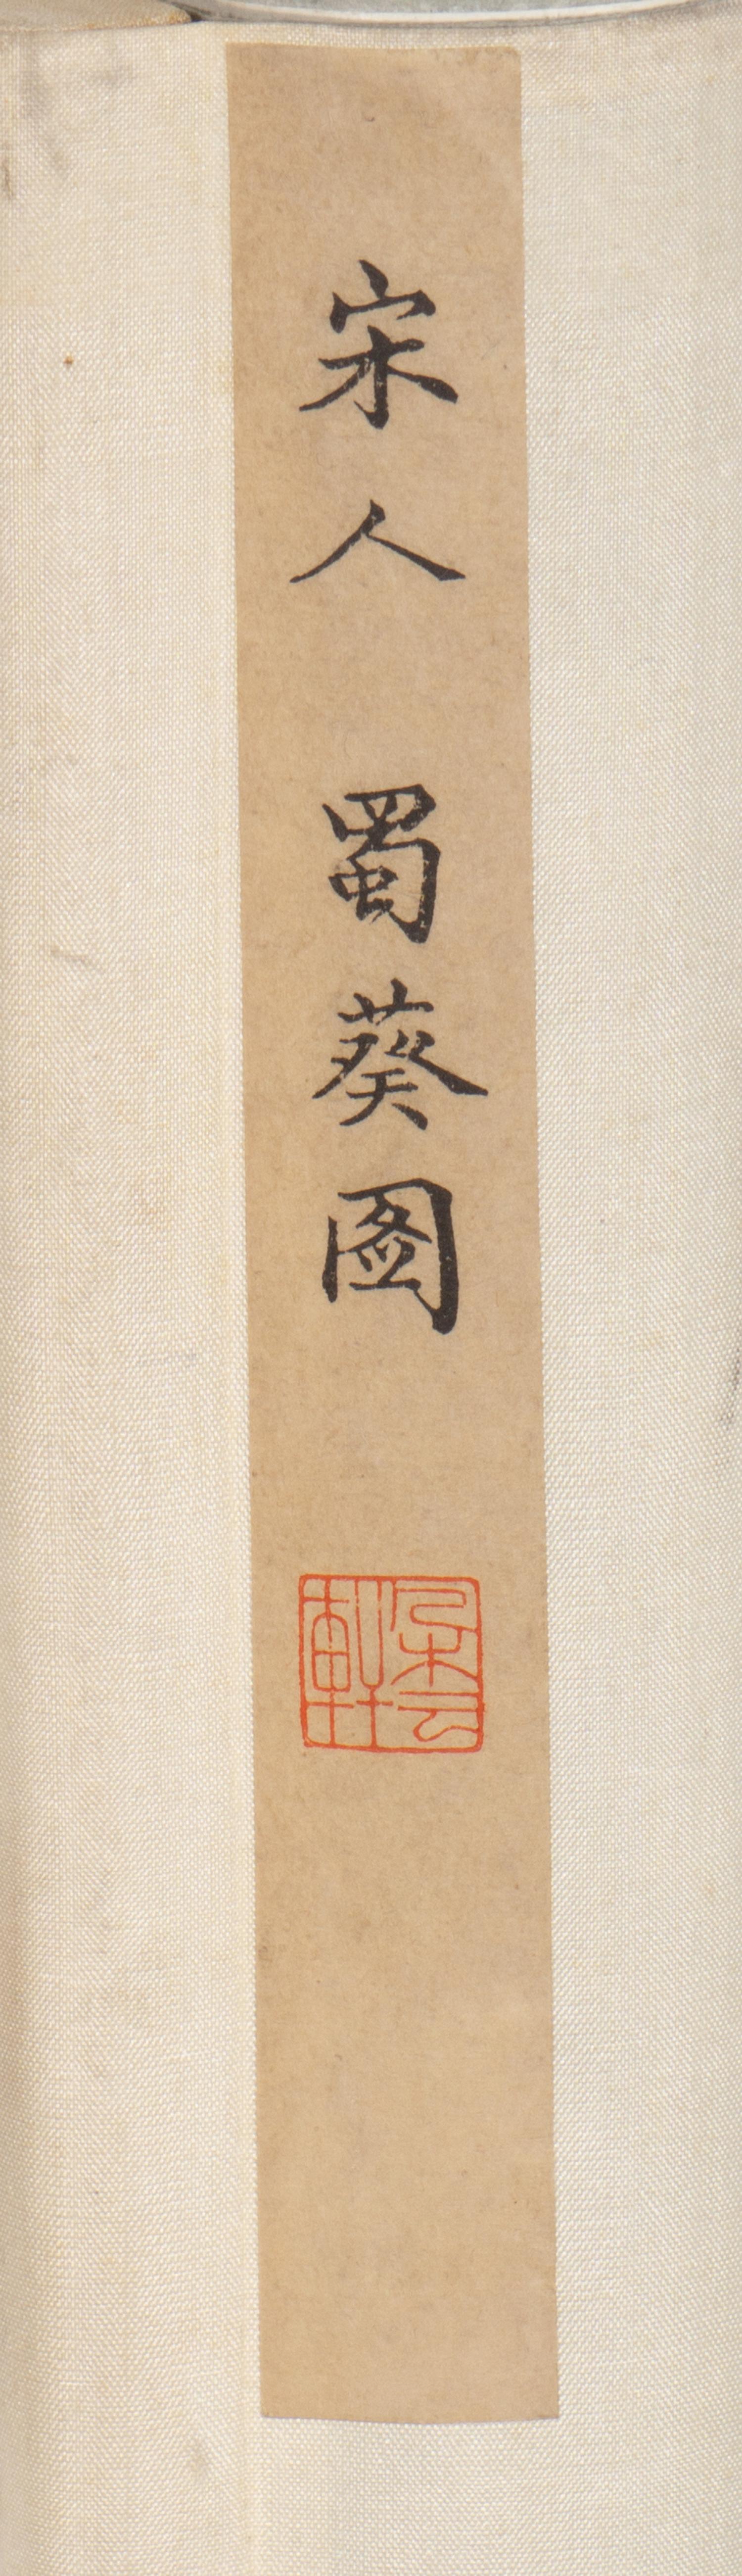 宋人 蜀葵圖
朵云軒